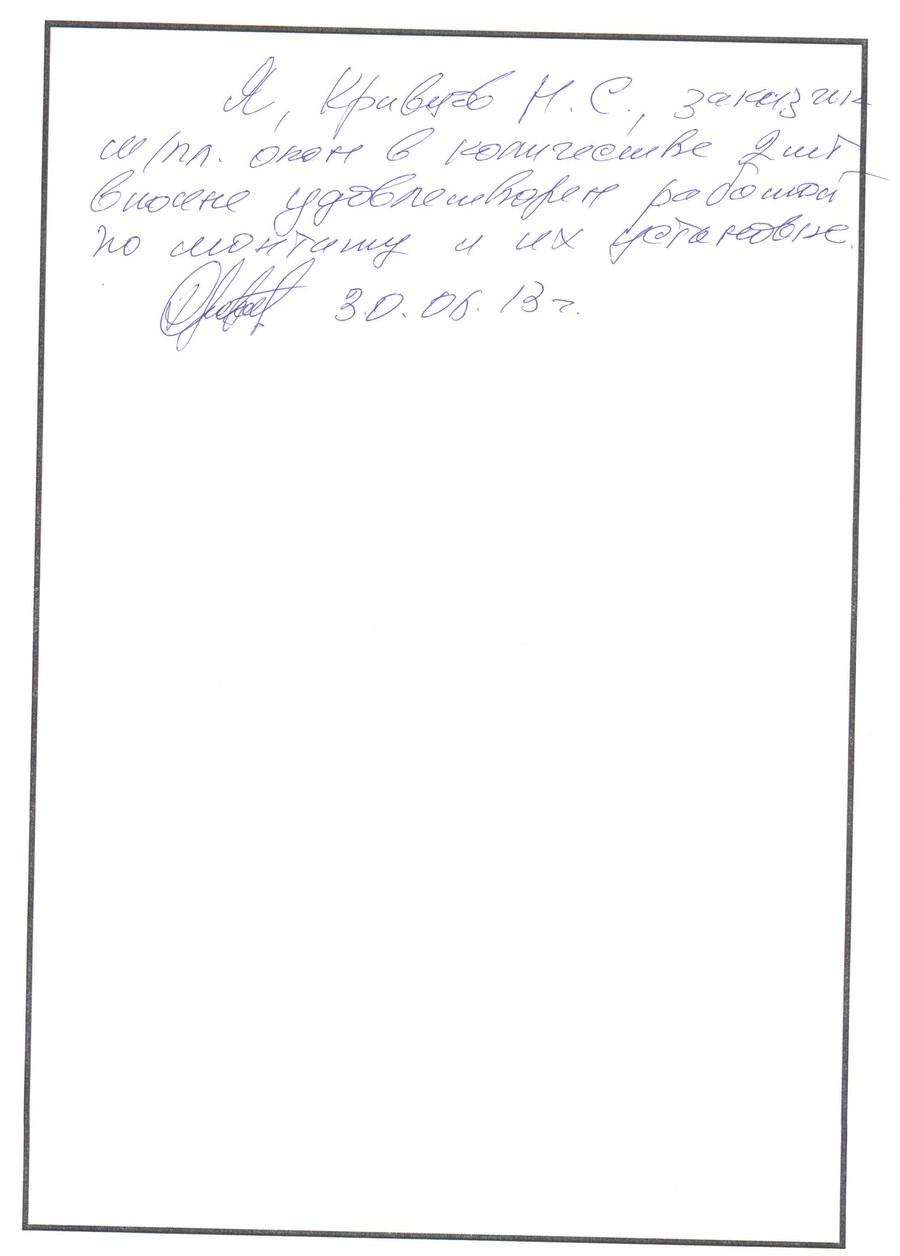 Я, Кривцов Н. С., заказчик
м/пл. окон в количестве 2 шт
вполне удовлетворен работой
по монтажу и их установке.
30.06.13 г.